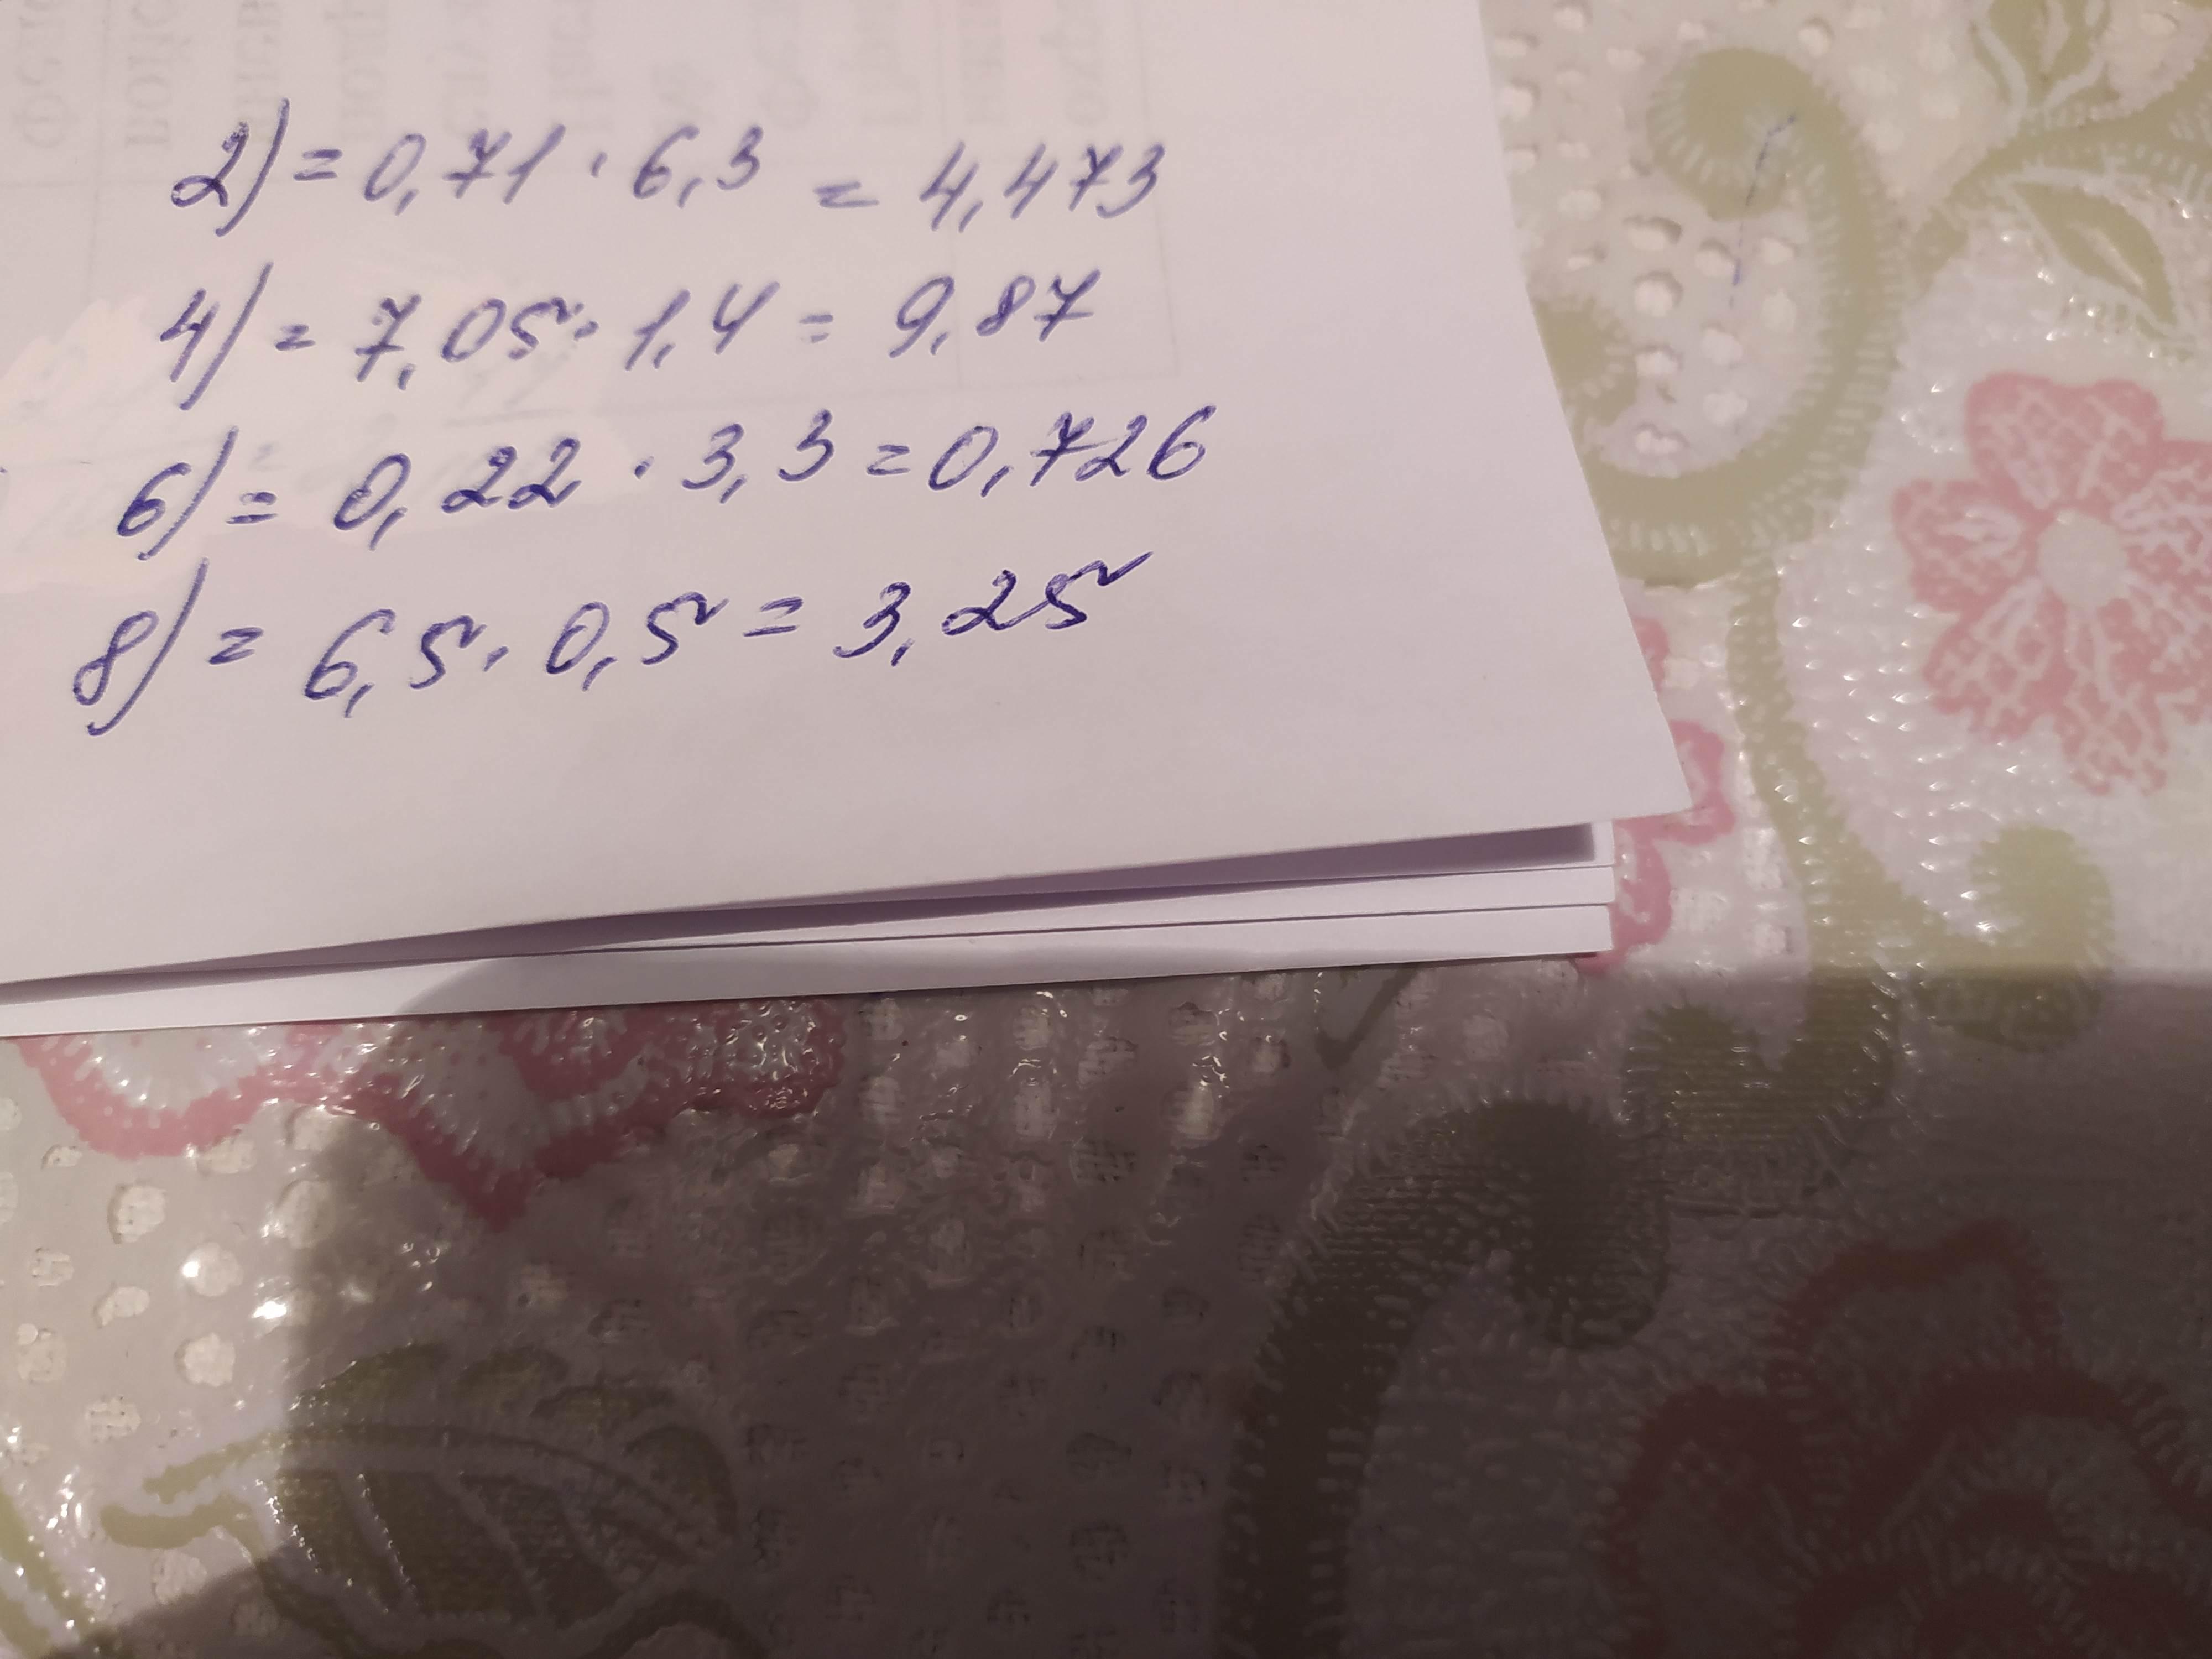 2) = 0,71 · 6,3 = 4,473
4) = 7,05 · 1,4 = 9,87
6) = 0,22 · 3,3 = 0,726
8) = 6,5 · 0,5 = 3,25